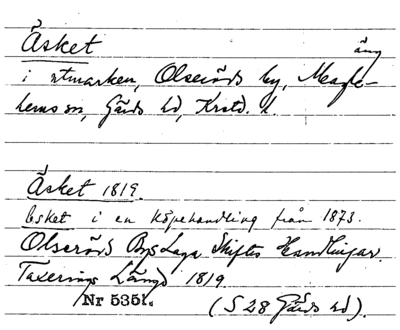 Äsket äng
i utmarken, Olseröds by, Maglehems sn, Gärds hd, Krstd. l.
Äsket 1819.
Esket i en köpehandling från 1873.
Olseröds Bys Laga Skiftes Handlingar.
Taxerings Längd 1819.
Nr 5351. (S 28 Gärds hd).